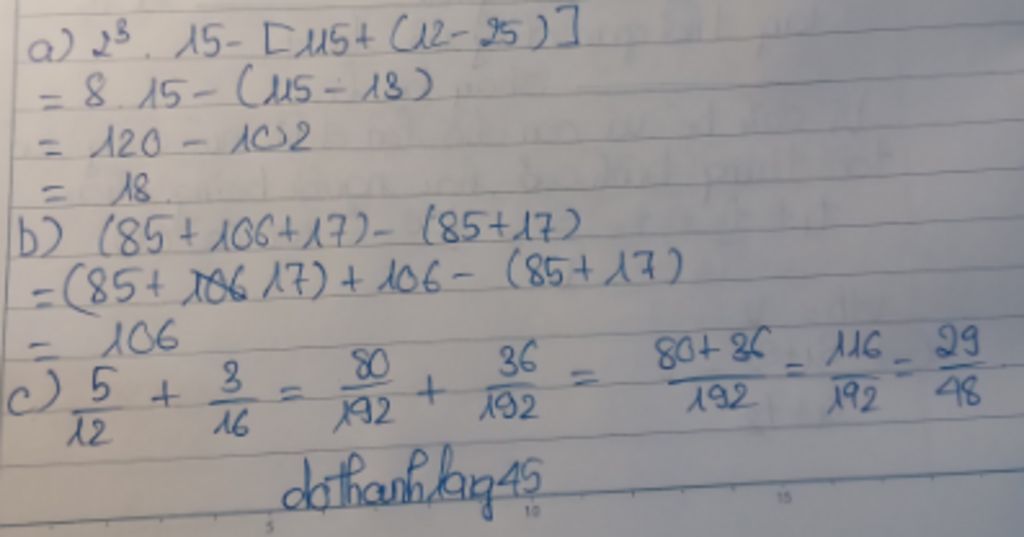 a) 2³ . 15 - [115 + (12 - 25)]
= 8 . 15 - (115 - 13)
= 120 - 102
= 18
b) (85 + 106 + 17) - (85 + 17)
= (85 + 17) + 106 - (85 + 17)
= 106
c) 5/12 + 3/16 = 80/192 + 36/192 = 80+36/192 = 116/192 = 29/48
dothanhlag45
5 10 15